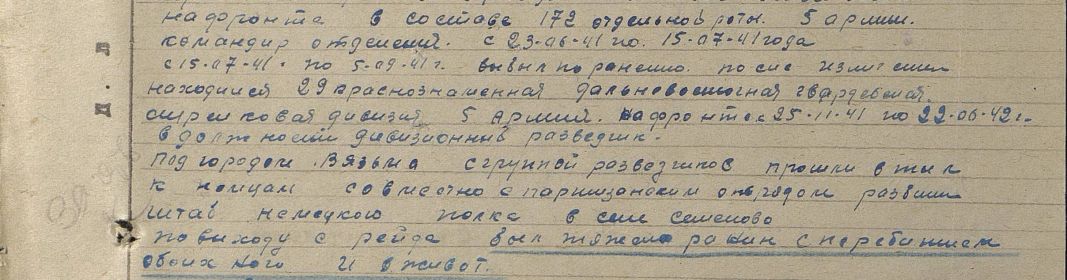 на фронте в составе 172 отдельной роты. 5 армии.
командир отделений. с 23-06-41 по. 15-07-41 года
с 15-07-41. по 5-09-41 г. выбыл по ранению. после излечения
находился 29 краснознаменная дальневосточная гвардейская.
стрелковая дивизия 5 армии. на фронте с 25-11-41 по 22-06-42 г.
в должности дивизионный разведчик.
под городом. Вязьма с группой разведчиков прошли в тыл
к немцам совместно с партизанским отрядом развили
штаб немецкого полка в селе семеново
по выходу с рейда был тяжело ранин с перебитием
обоих ног и в живот.